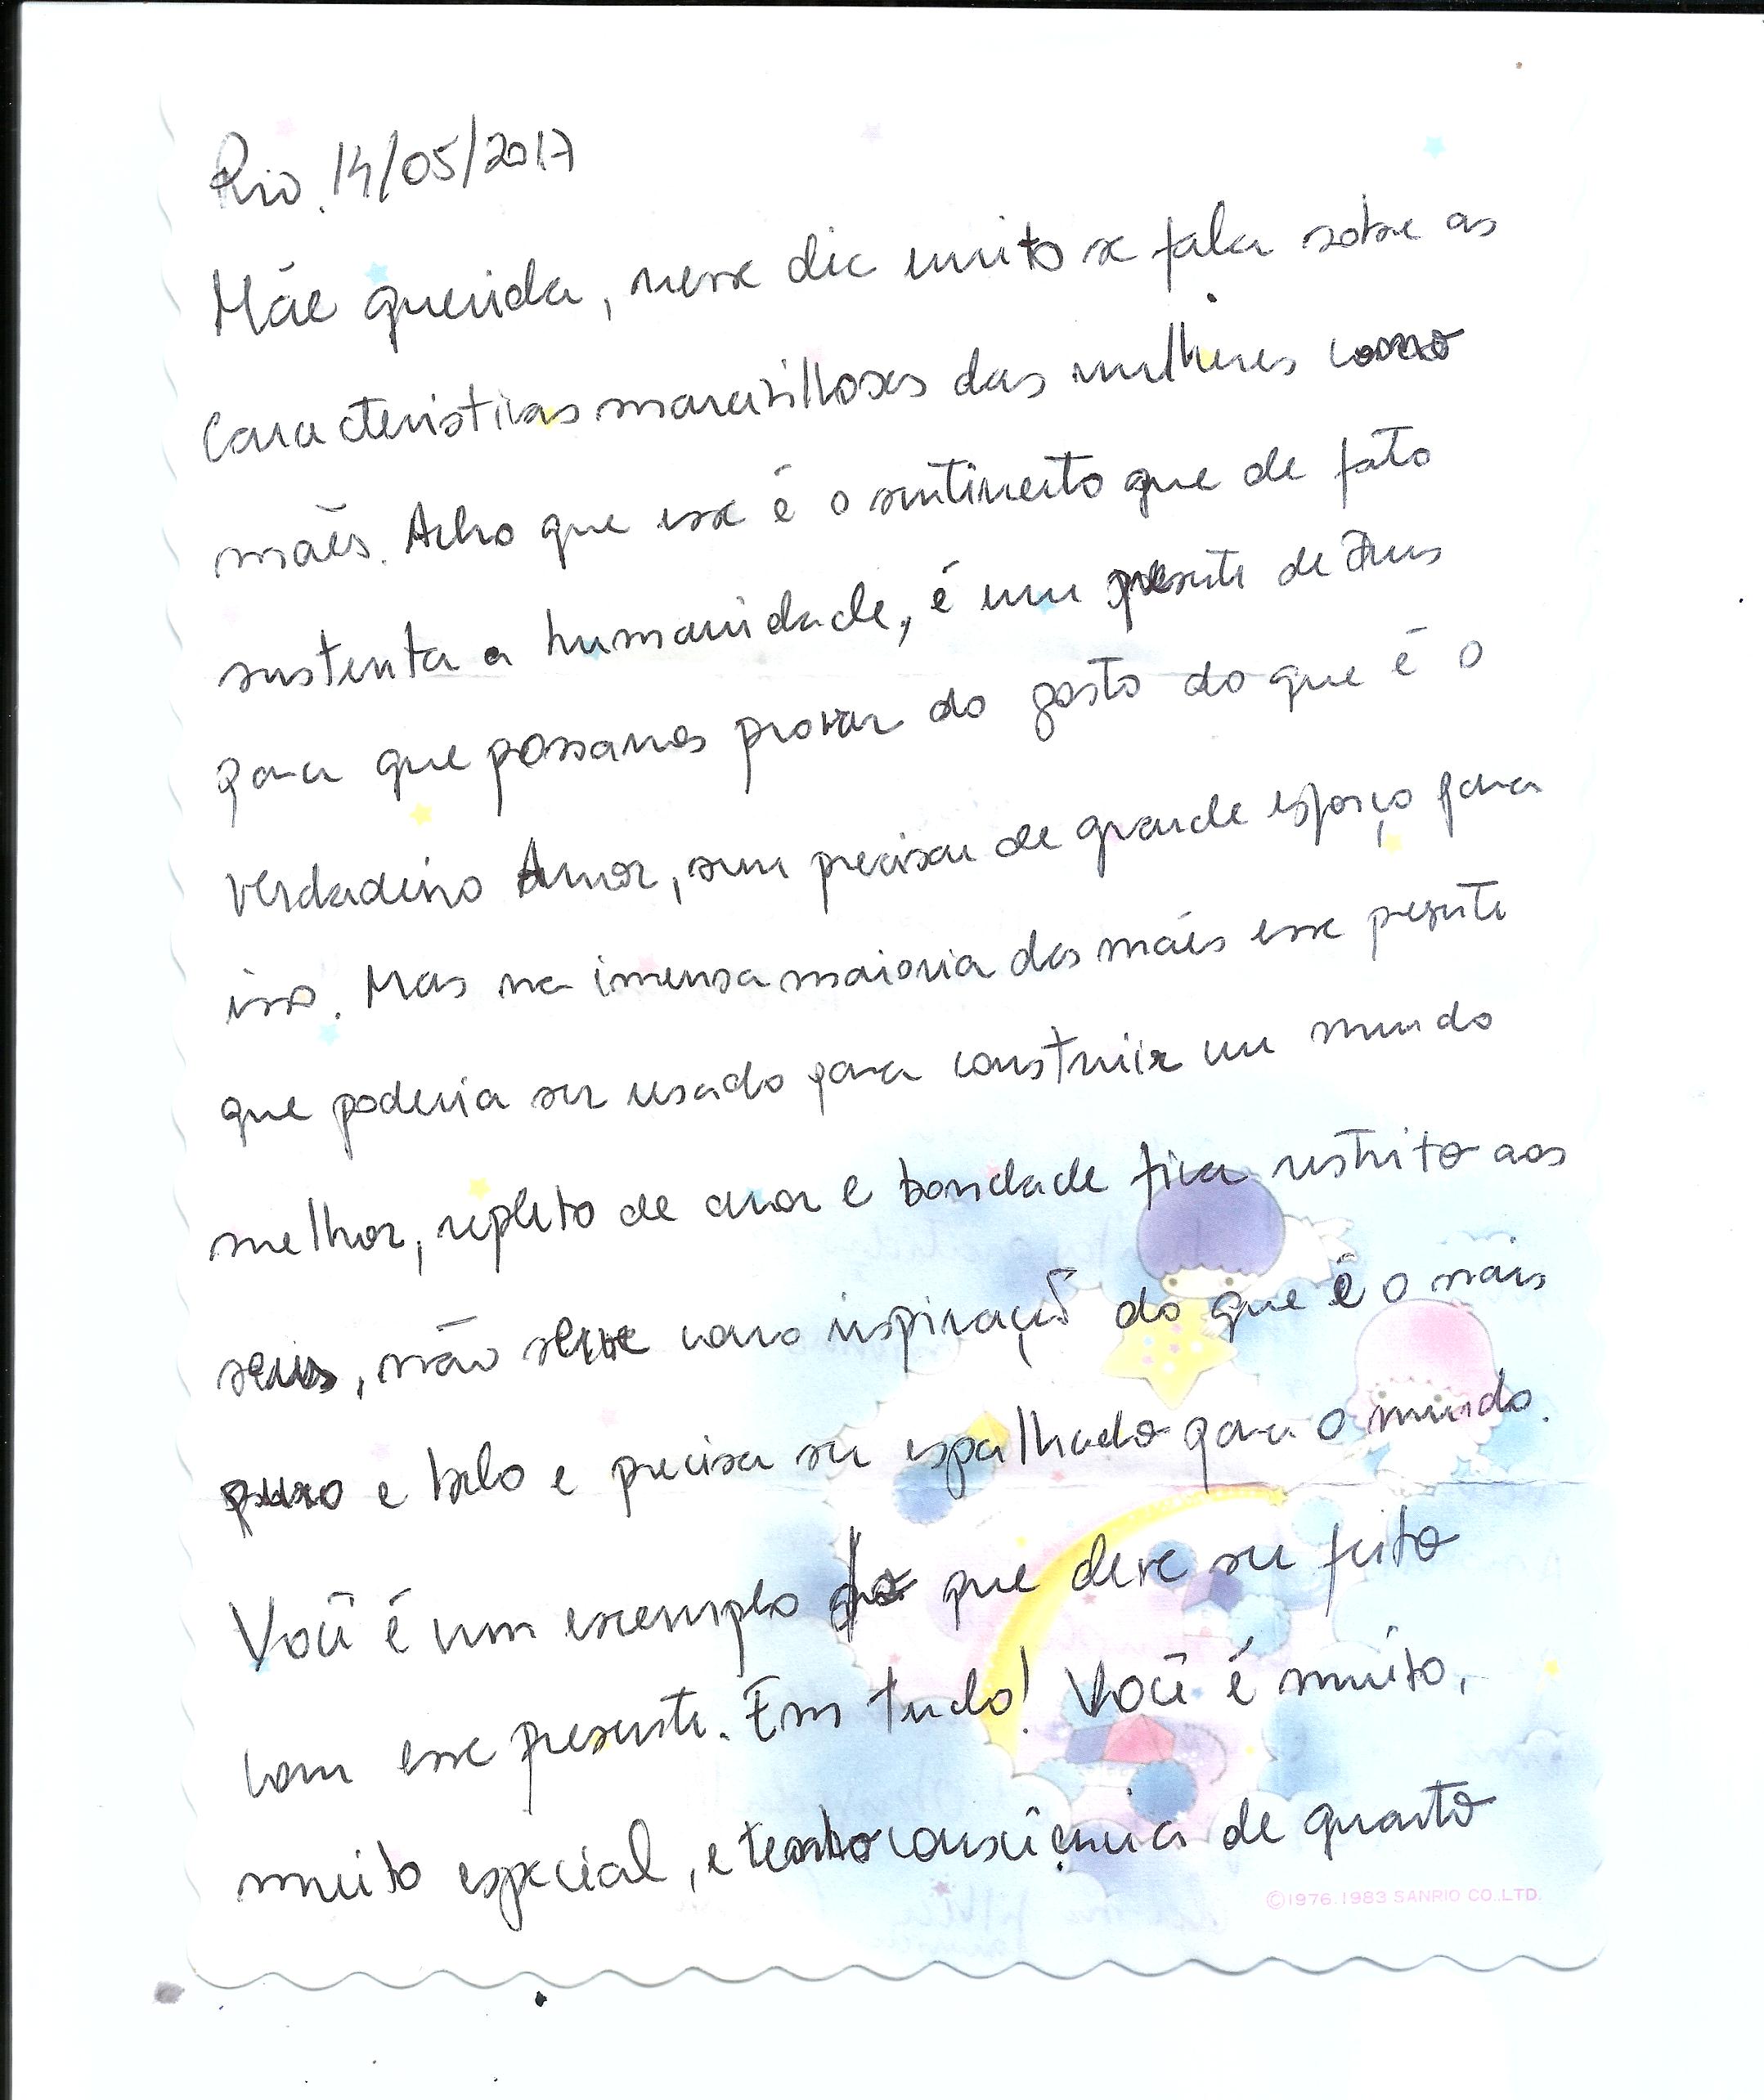 Rio, 14/05/2017
Mãe querida, nesse dia muito se fala sobre as
características maravilhosas das mulheres como
mães. Acho que esse é o sentimento que de fato
sustenta a humanidade, é um presente de Deus
para que possamos provar do gosto do que é o
verdadeiro Amor, sem precisar de grande esforço para
isso. Mas na imensa maioria das mães esse presente
que poderia ser usado para construir um mundo
melhor, repleto de amor e bondade fica restrito aos
seus, não serve como inspiração do que é o mais
puro e belo e precisa ser espalhado para o mundo.
Você é um exemplo do que deve ser feito
com esse presente. Em tudo! Você é muito,
muito especial, e tenho consciência de quanto
©1976.1983 SANRIO CO.,LTD.